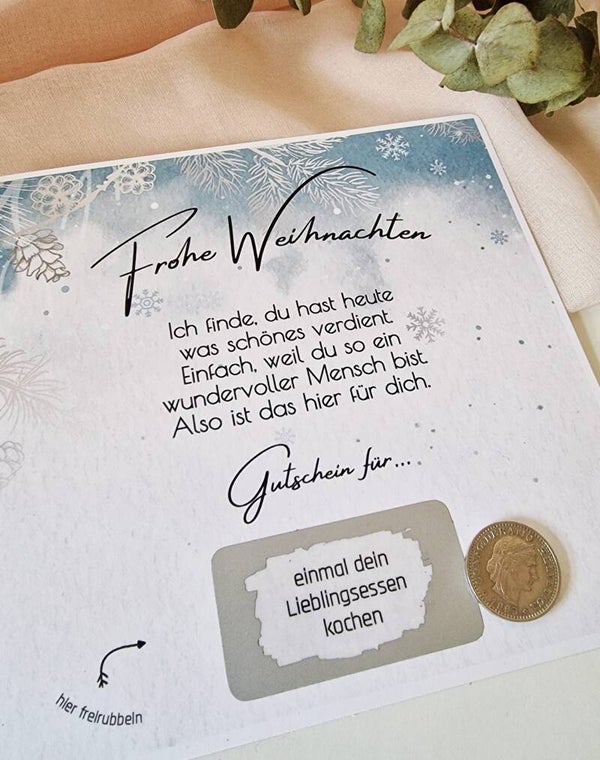 Frohe Weihnachten
Ich finde, du hast heute
was schönes verdient.
Einfach, weil du so ein
wundervoller Mensch bist.
Also ist das hier für dich.
Gutschein für...
einmal dein
Lieblingsessen
kochen
hier freirubbeln